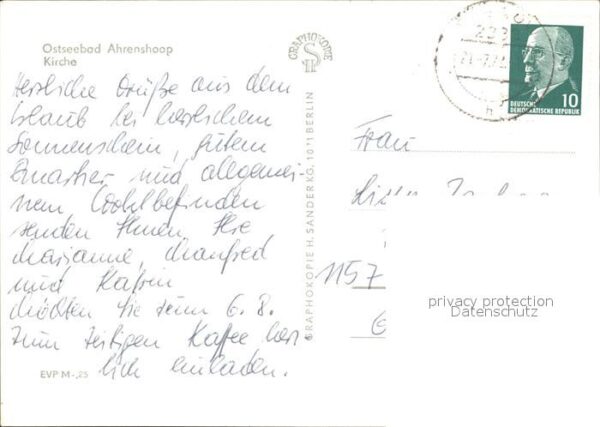 Ostseebad Ahrenshoop
Kirche
Herzliche Grüße aus dem
Urlaub bei herrlichem
Sonnenschein, gutem
Quartier und allgemei-
nem Wohlbefinden
senden Ihnen Ihre
Marianne, Manfred
und Katrin
Möchten Sie zum 6. 8.
zum zeitigen Kaffee herz-
lich einladen.
EVP M-,25
GRAPHOKOPIE
SH
GRAPHOKOPIE H. SANDER KG. 1071 BERLIN
10
DEUTSCHE
DEMOKRATISCHE REPUBLIK
Frau
1157
privacy protection
Datenschutz